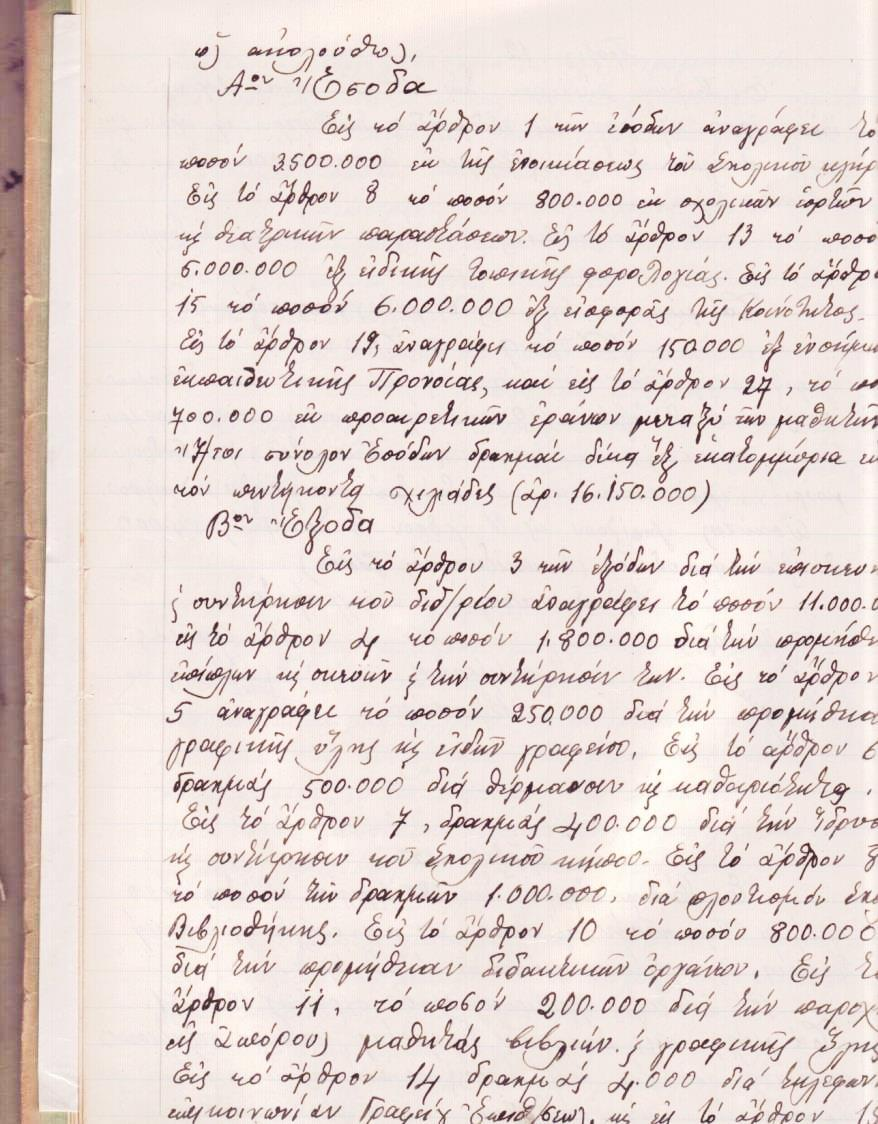 ὡς ἀκολούθως,
Αον Ἔσοδα
Εἰς τό ἄρθρον 1 τῶν ἐσόδων ἀναγράφει τό
ποσόν 3.500.000 ἐκ τῆς ἐνοικιάσεως τοῦ Σχολικοῦ κλήρ
Εἰς τό ἄρθρον 8 τό ποσόν 800.000 ἐκ σχολικῶν ἑορτῶν
κ θεατρικῶν παραστάσεων. Εἰς τό ἄρθρον 13 τό ποσό
5.000.000 ἐξ εἰδικῆς τοπικῆς φορολογίας. Εἰς τό ἄρθρο
15 τό ποσόν 6.000.000 ἐξ εἰσφορᾶς τῆς Κοινότητος.
Εἰς τό ἄρθρον 19, ἀναγράφει τό ποσόν 150.000 ἐξ ἐνσήμω
ἐκπαιδευτικῆς Προνοίας, καί εἰς τό ἄρθρον 27, τό πο
700.000 ἐκ προαιρετικῶν ἐράνων μεταξύ τῶν μαθητῶν
Ἤτοι σύνολον Ἐσόδων δραχμαί δέκα ἕξ ἑκατομμύρια ἑ
τόν πεντήκοντα χιλιάδες (Δρ. 16.150.000)
Βον Ἔξοδα
Εἰς τό ἄρθρον 3 τῶν ἐξόδων διά τήν ἐπισκευή
κ συντήρησιν τοῦ διδ/ρίου ἀναγράφει τό ποσόν 11.000.0
εἰς τό ἄρθρον 4 τό ποσόν 1.800.000 διά τήν προμήθε
ἐπίπλων κ σκευῶν κ τήν συντήρησίν των. Εἰς τό ἄρθρον
5 ἀναγράφει τό ποσόν 250.000 διά τήν προμήθεια
γραφικῆς ὕλης κ εἰδῶν γραφείου. Εἰς τό ἄρθρον 6
δραχμάς 500.000 διά θέρμανσιν κ καθαριότητα.
Εἰς τό ἄρθρον 7, δραχμάς 400.000 διά τήν ἵδρυσ
κ συντήρησιν τοῦ Σχολικοῦ κήπου. Εἰς τό ἄρθρον 8
τό ποσόν τῶν δραχμῶν 1.000.000. διά πλουτισμόν Σχο
Βιβλιοθήκης. Εἰς τό ἄρθρον 10 τό ποσόν 800.000
διά τήν προμήθειαν διδακτικῶν ὀργάνων. Εἰς τ
ἄρθρον 11, τό ποσόν 200.000 διά τήν παροχ
εἰς ἀπόρους μαθητάς βιβλίων κ γραφικῆς ὕλης
Εἰς τό ἄρθρον 14 δραχμάς 4.000 διά τηλεφων
ἐπικοινωνίαν Γραφείου Ἐπιθ/σεως, κ εἰς τό ἄρθρον 15